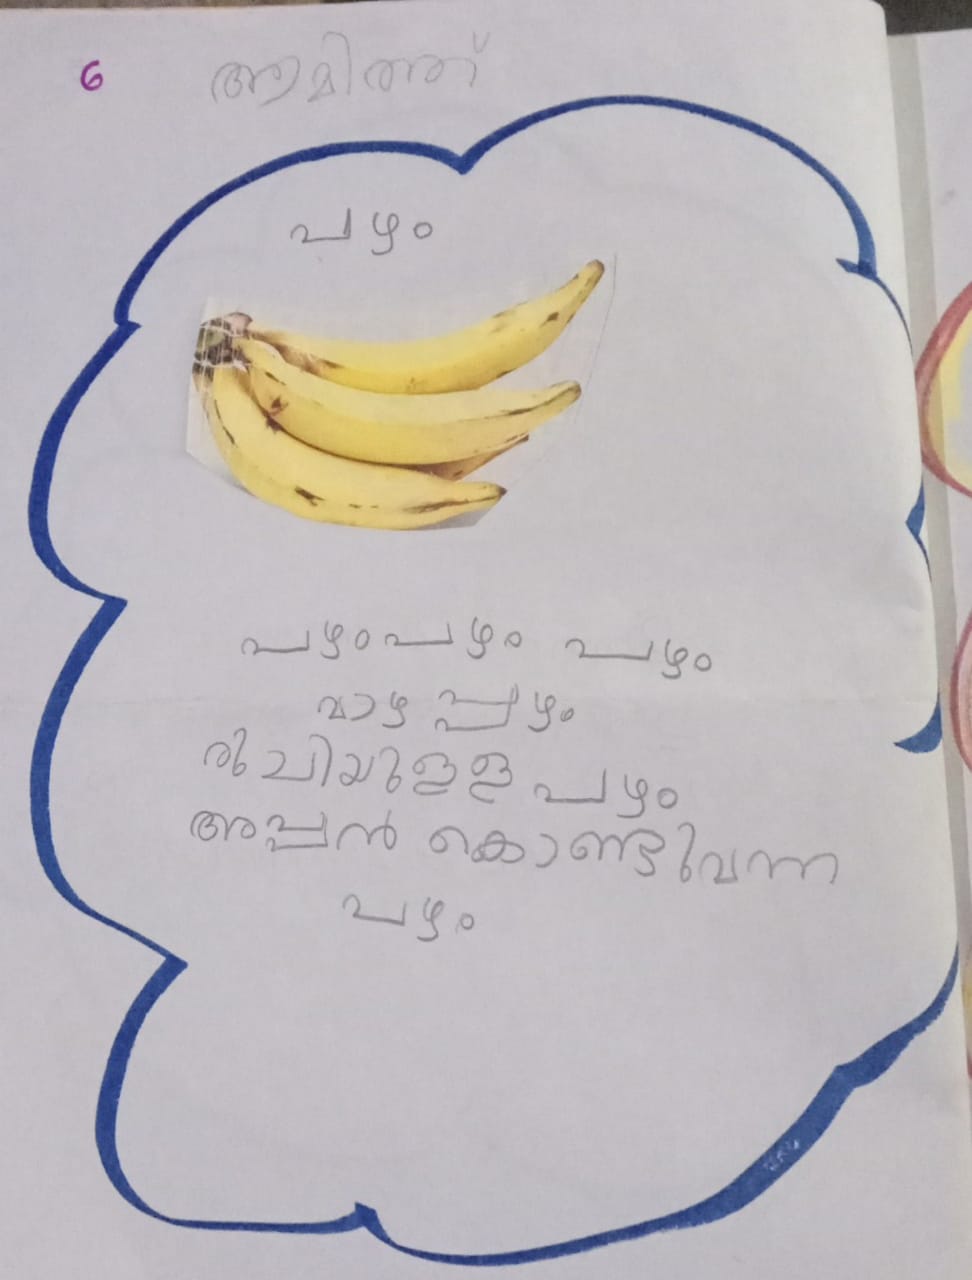 6 ആമിത്ത്
പഴം
പഴംപഴം പഴം
വാഴപ്പഴം
രുചിയുള്ള പഴം
അപ്പൻ കൊണ്ടുവന്ന
പഴം